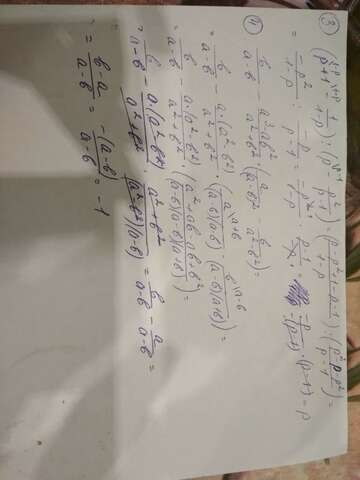 ③ (p+1 - 1/(1-p)) : (p - p²/(p-1)) = (p-p²+1-p-1)/(1-p) : (p²-p-p²)/(p-1) =
= -p²/(1-p) : -p/(p-1) = -p²/(1-p) · (p-1)/-p = p/-(p-1) · (p-1) = p
④ b/(a-b) - (a³-ab²)/(a²+b²) · (a/(a-b)² - b/(a²-b²)) =
= b/(a-b) - a·(a²-b²)/(a²+b²) · (a\a+b/((a-b)(a-b)) - b\a-b/((a-b)(a+b))) =
= b/(a-b) - a·(a²-b²)/(a²+b²) · (a²+ab-ab+b²)/((a-b)(a-b)(a+b)) =
= b/(a-b) - a·(a²-b²)/(a²+b²) · (a²+b²)/((a²-b²)(a-b)) = b/(a-b) - a/(a-b) =
= (b-a)/(a-b) = -(a-b)/(a-b) = -1